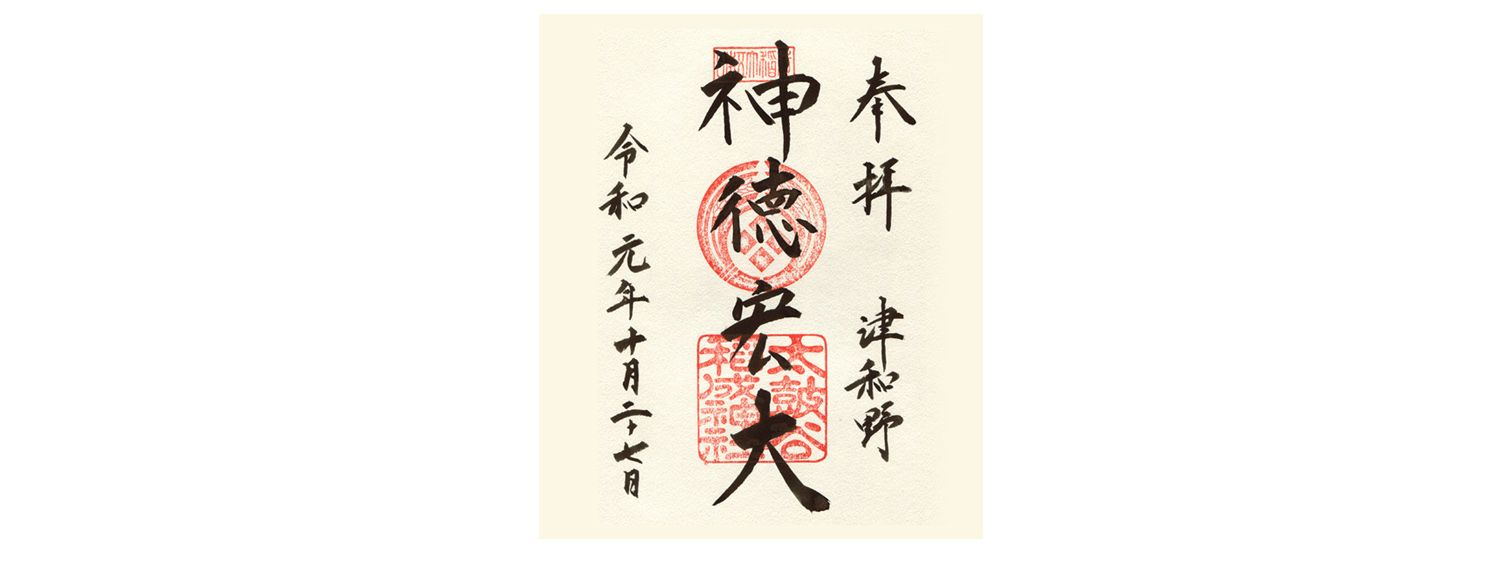 奉拝 津和野
神徳宏大
太鼓谷
稲成神社
令和元年十月二十七日